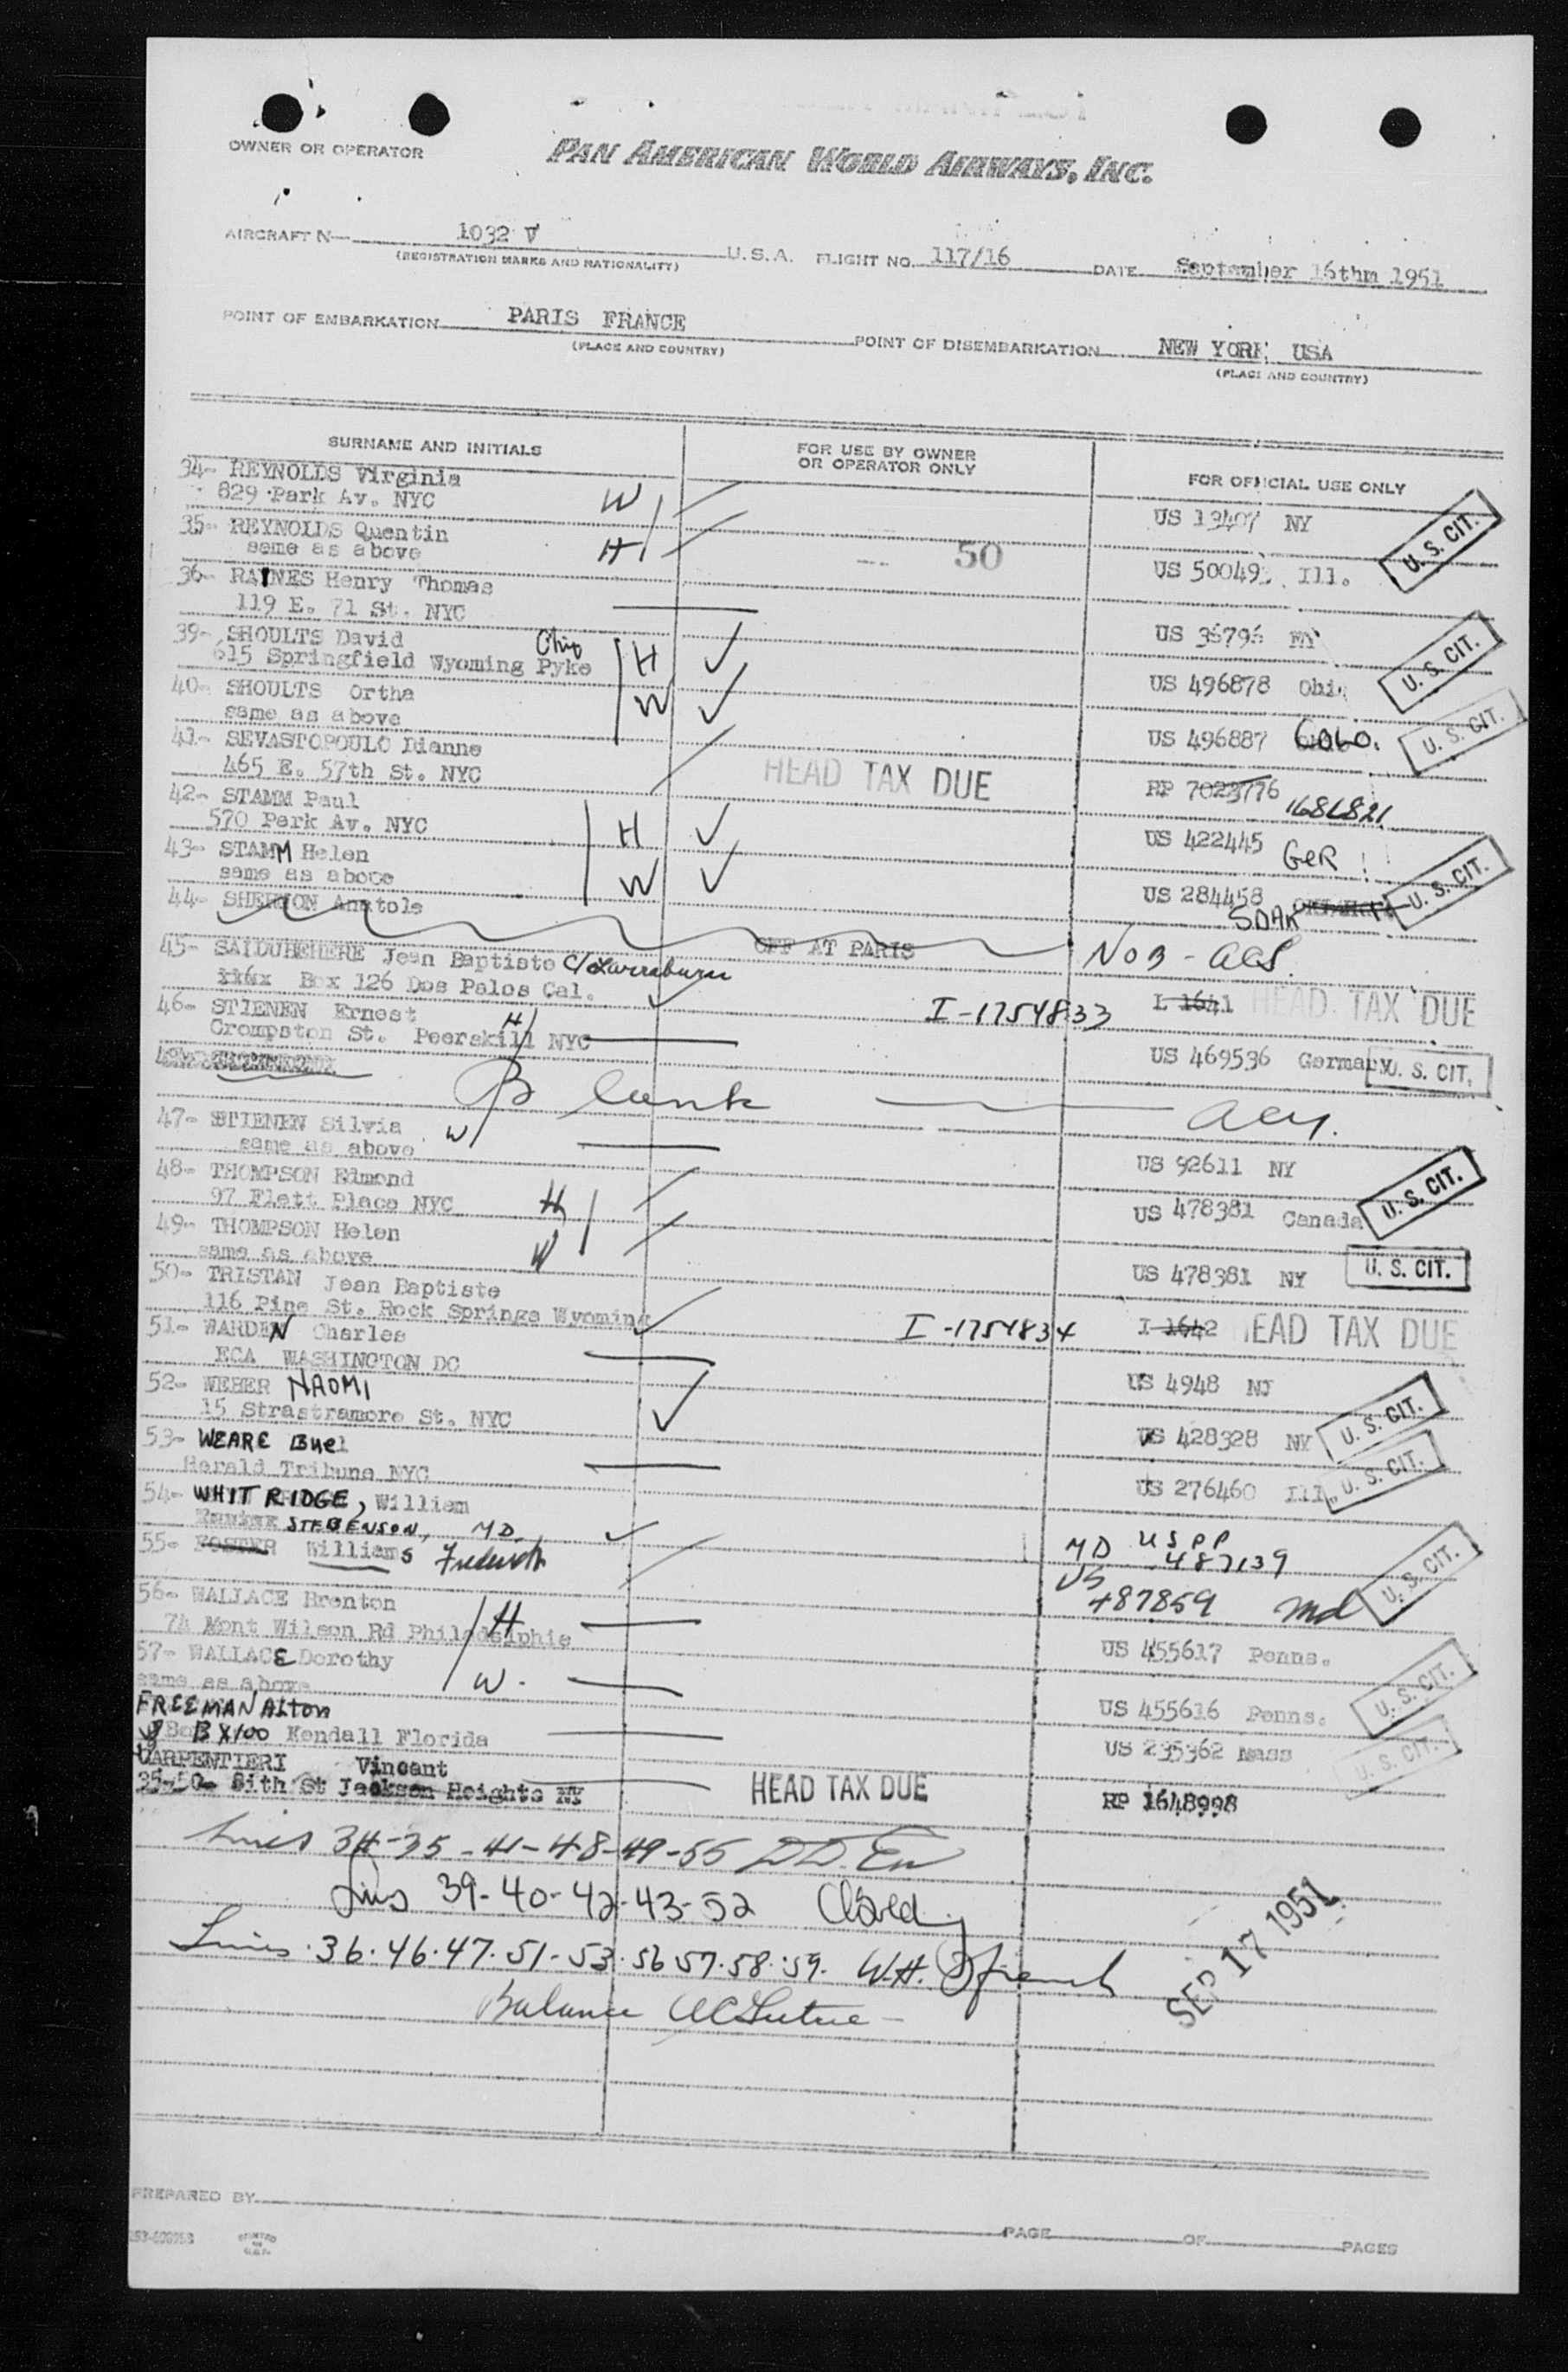 OWNER OR OPERATOR
PAN AMERICAN WORLD AIRWAYS, INC.
AIRCRAFT N— 1032 V U.S.A. FLIGHT NO. 117/16 DATE September 16thm 1951
(REGISTRATION MARKS AND NATIONALITY)
POINT OF EMBARKATION PARIS FRANCE POINT OF DISEMBARKATION NEW YORK USA
(PLACE AND COUNTRY) (PLACE AND COUNTRY)
SURNAME AND INITIALS FOR USE BY OWNER OR OPERATOR ONLY FOR OFFICIAL USE ONLY
34- REYNOLDS Virginia
829 Park Av. NYC W US 19407 NY
35- REYNOLDS Quentin
same as above H 50 US 50049 Ill. U. S. CIT.
36- RAINES Henry Thomas
119 E. 71 St. NYC US 38796 NY
39- SHOULTS David Ohio
615 Springfield Wyoming Pyke H US 496878 Ohi U. S. CIT.
40- SHOULTS Ortha
same as above W US 496887 COLO. U. S. CIT.
41- SEVASTOPOULO Dianne
465 E. 57th St. NYC HEAD TAX DUE RP 7023776 1686821
42- STAMM Paul
570 Park Av. NYC H US 422445 GER
43- STAMM Helen
same as above W US 284458 SDAK U. S. CIT.
44- SHERMON Anatole
OFF AT PARIS NOB - ACS.
45- SAIDUHEHERE Jean Baptiste C/o Larraburu
Box 126 Dos Palos Cal. I-1754833 I 1641 HEAD TAX DUE
46- STIENEN Ernest H
Crompston St. Peerskill NYC US 469536 Germany U. S. CIT.
Blank
47- STIENEN Silvia
same as above W US 92611 NY
48- THOMPSON Edmond
97 Flett Place NYC H US 478381 Canada U. S. CIT.
49- THOMPSON Helen
same as above W US 478381 NY U. S. CIT.
50- TRISTAN Jean Baptiste
116 Pine St. Rock Springs Wyoming I-1754834 I 1642 HEAD TAX DUE
51- WARDEN Charles
ECA WASHINGTON DC US 4948 NJ
52- WEBER NAOMI
15 Strastramore St. NYC US 428328 NY U. S. CIT.
53- WEARE Buel
Herald Tribune NYC US 276460 Ill. U. S. CIT.
54- WHITRIDGE, William
STEVENSON, MD. MD USPP 487139
55- FOSTER Williams Frederick US 487859 Md U. S. CIT.
56- WALLACE Brenton
74 Mont Wilson Rd Philadelphie H US 455617 Penns.
57- WALLACE Dorothy
same as above W. US 455616 Penns. U. S. CIT.
FREEMAN Alton
BX100 Kendall Florida US 235362 Mass U. S. CIT.
CARPENTIERI Vincent
35-50- 8ith St Jackson Heights NY HEAD TAX DUE RP 1648998
Lines 34-35-41-48-49-55
Lines 39-40-42-43-52
Lines 36.46.47.51-53.56 57.58.59. W.H.
Balance
SEP 17 1951
PREPARED BY
PAGE OF PAGES